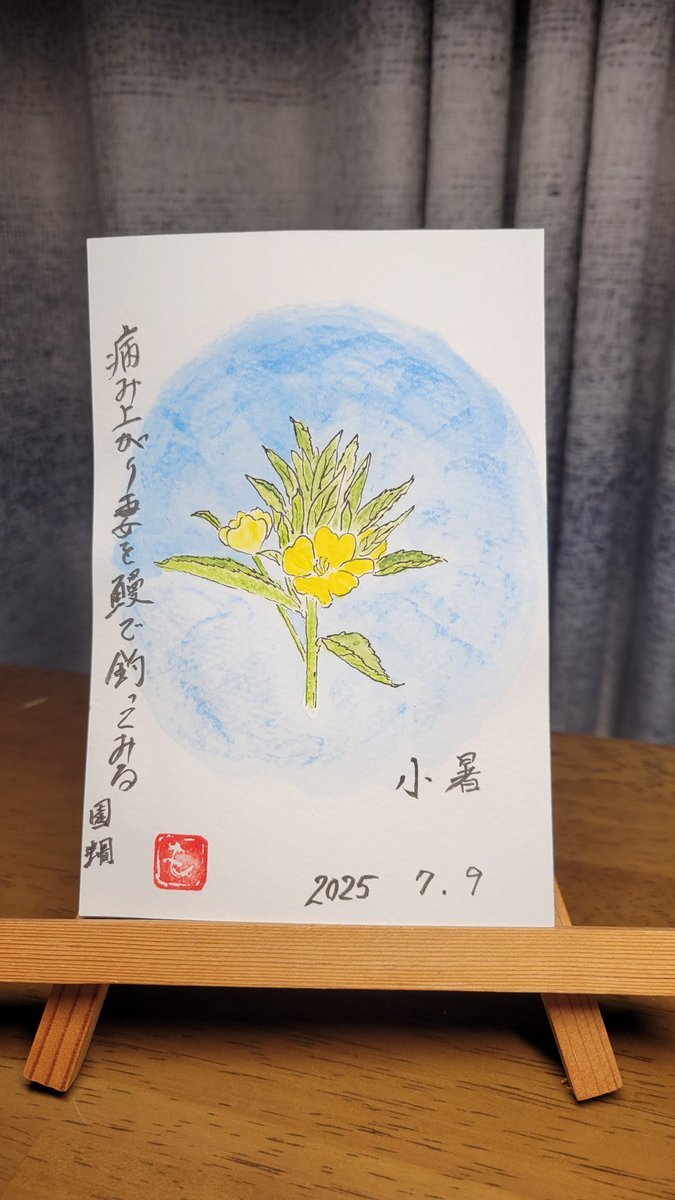 病み上がり妻を鰻で釣ってみる
園
小暑
2025 7.9